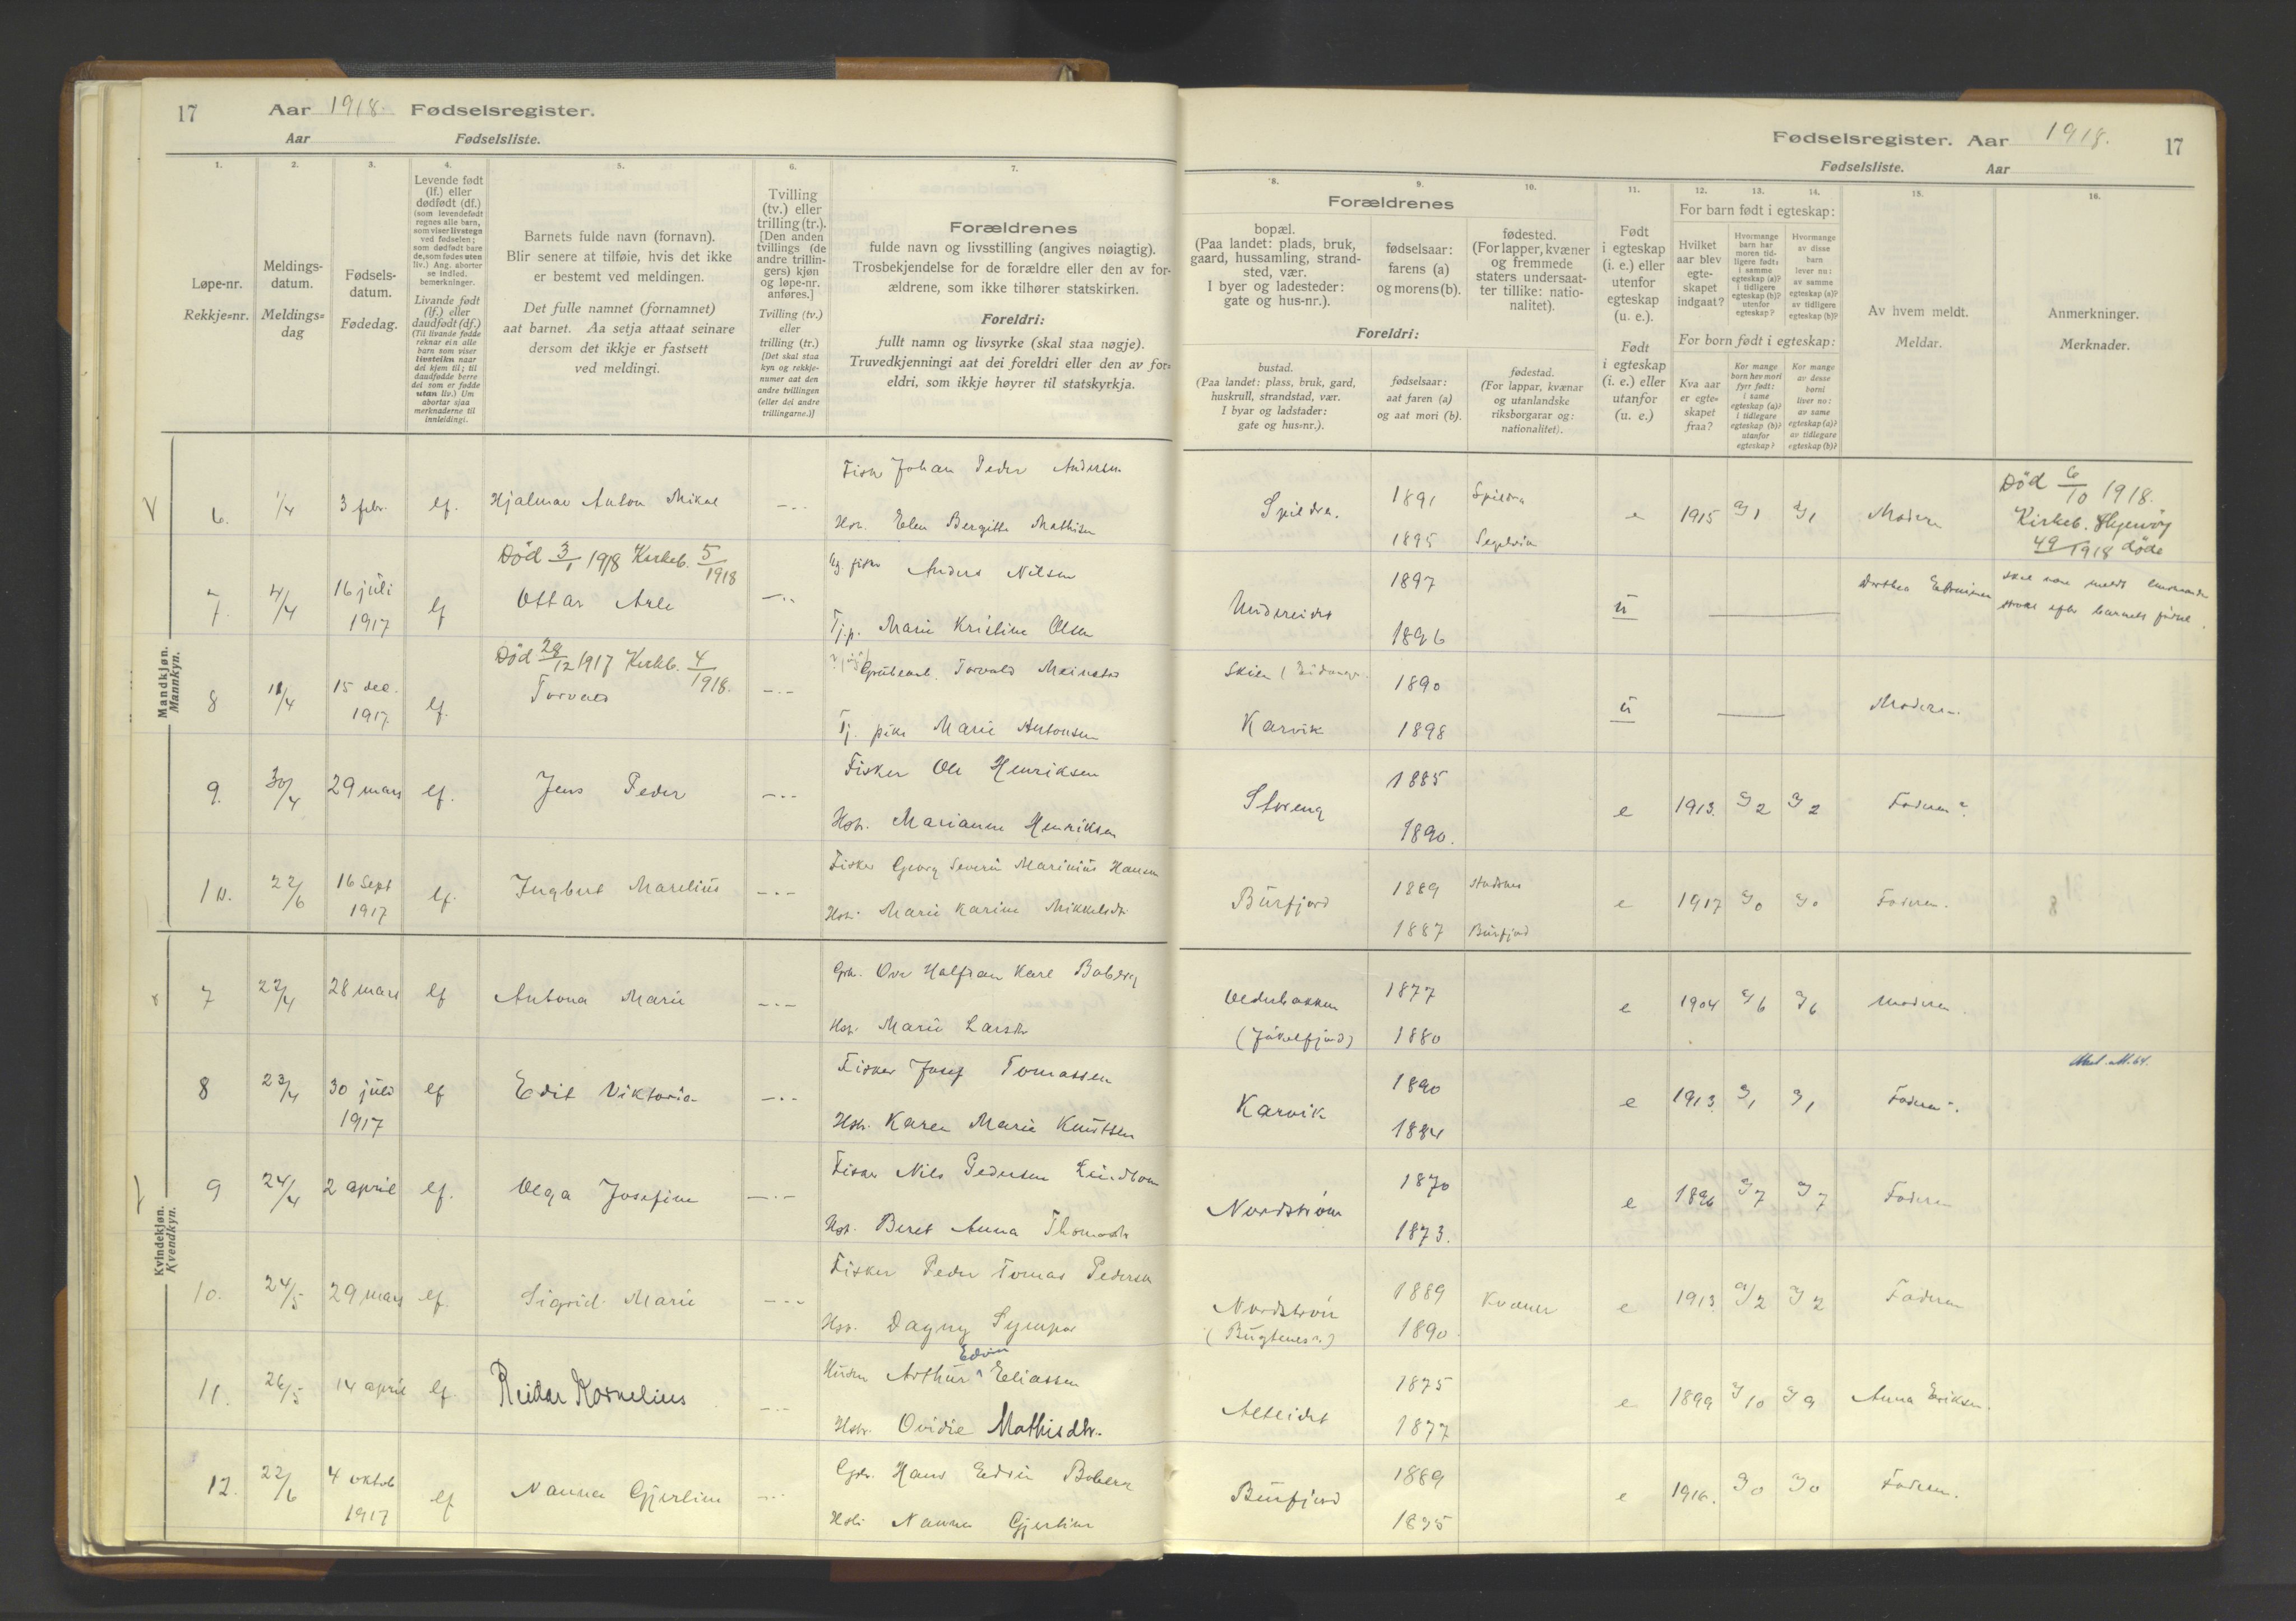 17 Aar 1918. Fødselsregister.
Aar Fødselsliste.
1. 2. 3. 4. 5. 6. 7.
Løpe-nr.
Rekkje=nr.
Meldings-
datum.
Meldings=
dag
Fødsels-
datum.
Fødedag.
Levende født
(lf.) eller
dødfødt (df.)
(som levendefødt
regnes alle barn,
som viser livstegn
ved fødselen;
som dødfødt bare
de, som fødes uten
liv.) Ang. aborter
se indled.
bemerkninger.
Livande født
(lf.) eller
daudfødt (df.)
(Til livande fødde
reknar ein alle
barn som viser
livsteikn naar
dei kjem til; til
daudfødde berre
dei som er fødde
utan liv.) Um
abortar sjaa
merknaderne til
innleidingi.
Barnets fulde navn (fornavn).
Blir senere at tilføie, hvis det ikke
er bestemt ved meldingen.
Det fulle namnet (fornamnet)
aat barnet. Aa setja attaat seinare
dersom det ikkje er fastsett
ved meldingi.
Tvilling
(tv.) eller
trilling (tr.).
[Den anden
tvillings (de
andre trillin-
gers) kjøn
og løpe-nr.
anføres.]
Tvilling (tv.)
eller
trilling (tr.)
[Det skal staa
kyn og rekkje-
numer aat den
andre tvillingen
(eller dei andre
trillingarne.)]
Forældrenes
fulde navn og livsstilling (angives nøiagtig).
Trosbekjendelse for de forældre eller den av for-
ældrene, som ikke tilhører statskirken.
Foreldri:
fullt namn og livsyrke (skal staa nøgje).
Truvedkjenningi aat dei foreldri eller den av for=
eldri, som ikkje høyrer til statskyrkja.
Fødselsregister. Aar 1918. 17
Fødselsliste. Aar
8. 9. 10. 11. 12. 13. 14. 15. 16.
Forældrenes
bopæl.
(Paa landet: plads, bruk,
gaard, hussamling, strand-
sted, vær.
I byer og ladesteder:
gate og hus-nr.).
fødselsaar:
farens (a)
og morens (b).
fødested.
(For lapper, kvæner
og fremmede
staters undersaat-
ter tillike: natio-
nalitet).
Foreldri:
bustad.
(Paa landet: plass, bruk, gard,
huskrull, strandstad, vær.
I byar og ladstader:
gate og hus=nr.).
fødselsaar:
aat faren (a)
og aat mori (b).
fødestad.
(For lappar, kvænar
og utanlandske
riksborgarar og:
nationalitet).
Født
i egteskap
(i. e.) eller
utenfor
egteskap
(u. e.).
Født
i egteskap
(i. e.) eller
utanfor
(u. e.)
For barn født i egteskap:
Hvilket
aar blev
egte-
skapet
indgaat?
Hvormange
barn har
moren tid-
ligere født:
i samme
egteskap (a)?
i tidligere
egteskap (b)?
utenfor
egteskap?
Hvormange
av disse
barn
lever nu:
av samme
egteskap (a)?
av tidligere
egteskap (b)?
For born født i egteskap:
Kva aar
er egte=
skapet
fraa?
Kor mange
born hev mori
fyrr født:
i same
egteskap (a)?
i tidlegare
egteskap (b)?
utanfor
egteskap?
Kor mange
av desse
borni
liver no:
av same
egteskap (a)?
av tidlegare
egteskap (b)?
Av hvem meldt.
Meldar.
Anmerkninger.
Merknader.
Mandkjøn.
Mannkyn.
6. 1/4 3 febr. lf. Hjalmar Anton Mikal
Fisker Johan Peder Andersen
Hstr. Elen Bergitte Mathisen
Spildra. 1891 Spildra
1895 Segelvik
e 1915 1 1 Moderen
Død 6/10 1918.
Kirkeb. Skjervøy
49/1918 døde
Død 3/1 1918 Kirkeb. 5/1918
7. 4/4 16 juli 1917 lf Ottar Arle
Ug. fisker Anders Nilsen
Tj.p. Marie Kristine Olsen
Undereidet 1897
1896
u
Dorthea
barnets fødsel.
Død 28/12 1917 Kirkb. 4/1918.
8 11/4 15 dec. 1917. lf. Torvald
Grubearb. Torvald
Tj. pike Marie Antonsen
Skien
Karvik 1890
1898
u Moderen.
9. 30/4 29 mars lf. Jens Peder
Fisker Ole Henriksen
Hstr. Marianne Henriksen
Storeng 1885
1890.
e 1913. 2 2 Faderen
10. 22/6 16 Sept 1917 lf. Ingbert Marelius
Fisker Georg Severin Marinius Hansen
Hstr. Marie Karine Mikkelsdtr.
Burfjord 1889
1887 Burfjord
e 1917 0 0 Faderen.
Kvindekjøn.
Kvendkyn.
7 22/4 28 mars lf Antona Marie
Gbr. Ove Halfdan Karl Boberg
Hstr. Marie Larsdtr
Olderbakken
(Jøkelfjord) 1877
1880
e 1904 6 6 Moderen.
8 23/4 30 juli 1917 lf Edit Viktoria
Fisker Josef Tomassen
Hstr. Karen Marie Knutsen
Karvik 1890
1884
e 1913. 1 1 Faderen.
9 24/4 2 april lf. Olga Josefine
Fisker Nils Pedersen Lindbom
Hst. Beret Anna Thomasdtr
Nordstrøm 1870
1873.
e 1896 7 7 Faderen
10. 24/5 29 mars lf. Sigrid Marie
Fisker Peder Tomas Pedersen
Hstr. Dagny
Nordstrøm 1889 Kvæner
1890.
e 1913. 2 2 Faderen
11. 26/5 14 april lf. Reidar Kornelius
Edvin
Arthur ^ Eliassen
Hstr. Ovidie Mathisdtr.
Alteidet 1875
1877
e 1899 10 9 Anna Eriksen.
12. 22/6 4 oktob 1917 lf Nanna Gjertine
Gbr. Hans Edvin Boberg
Hstr. Nanna Gjertine
Burfjord 1889
1895
e 1916. 0 0 Faderen.